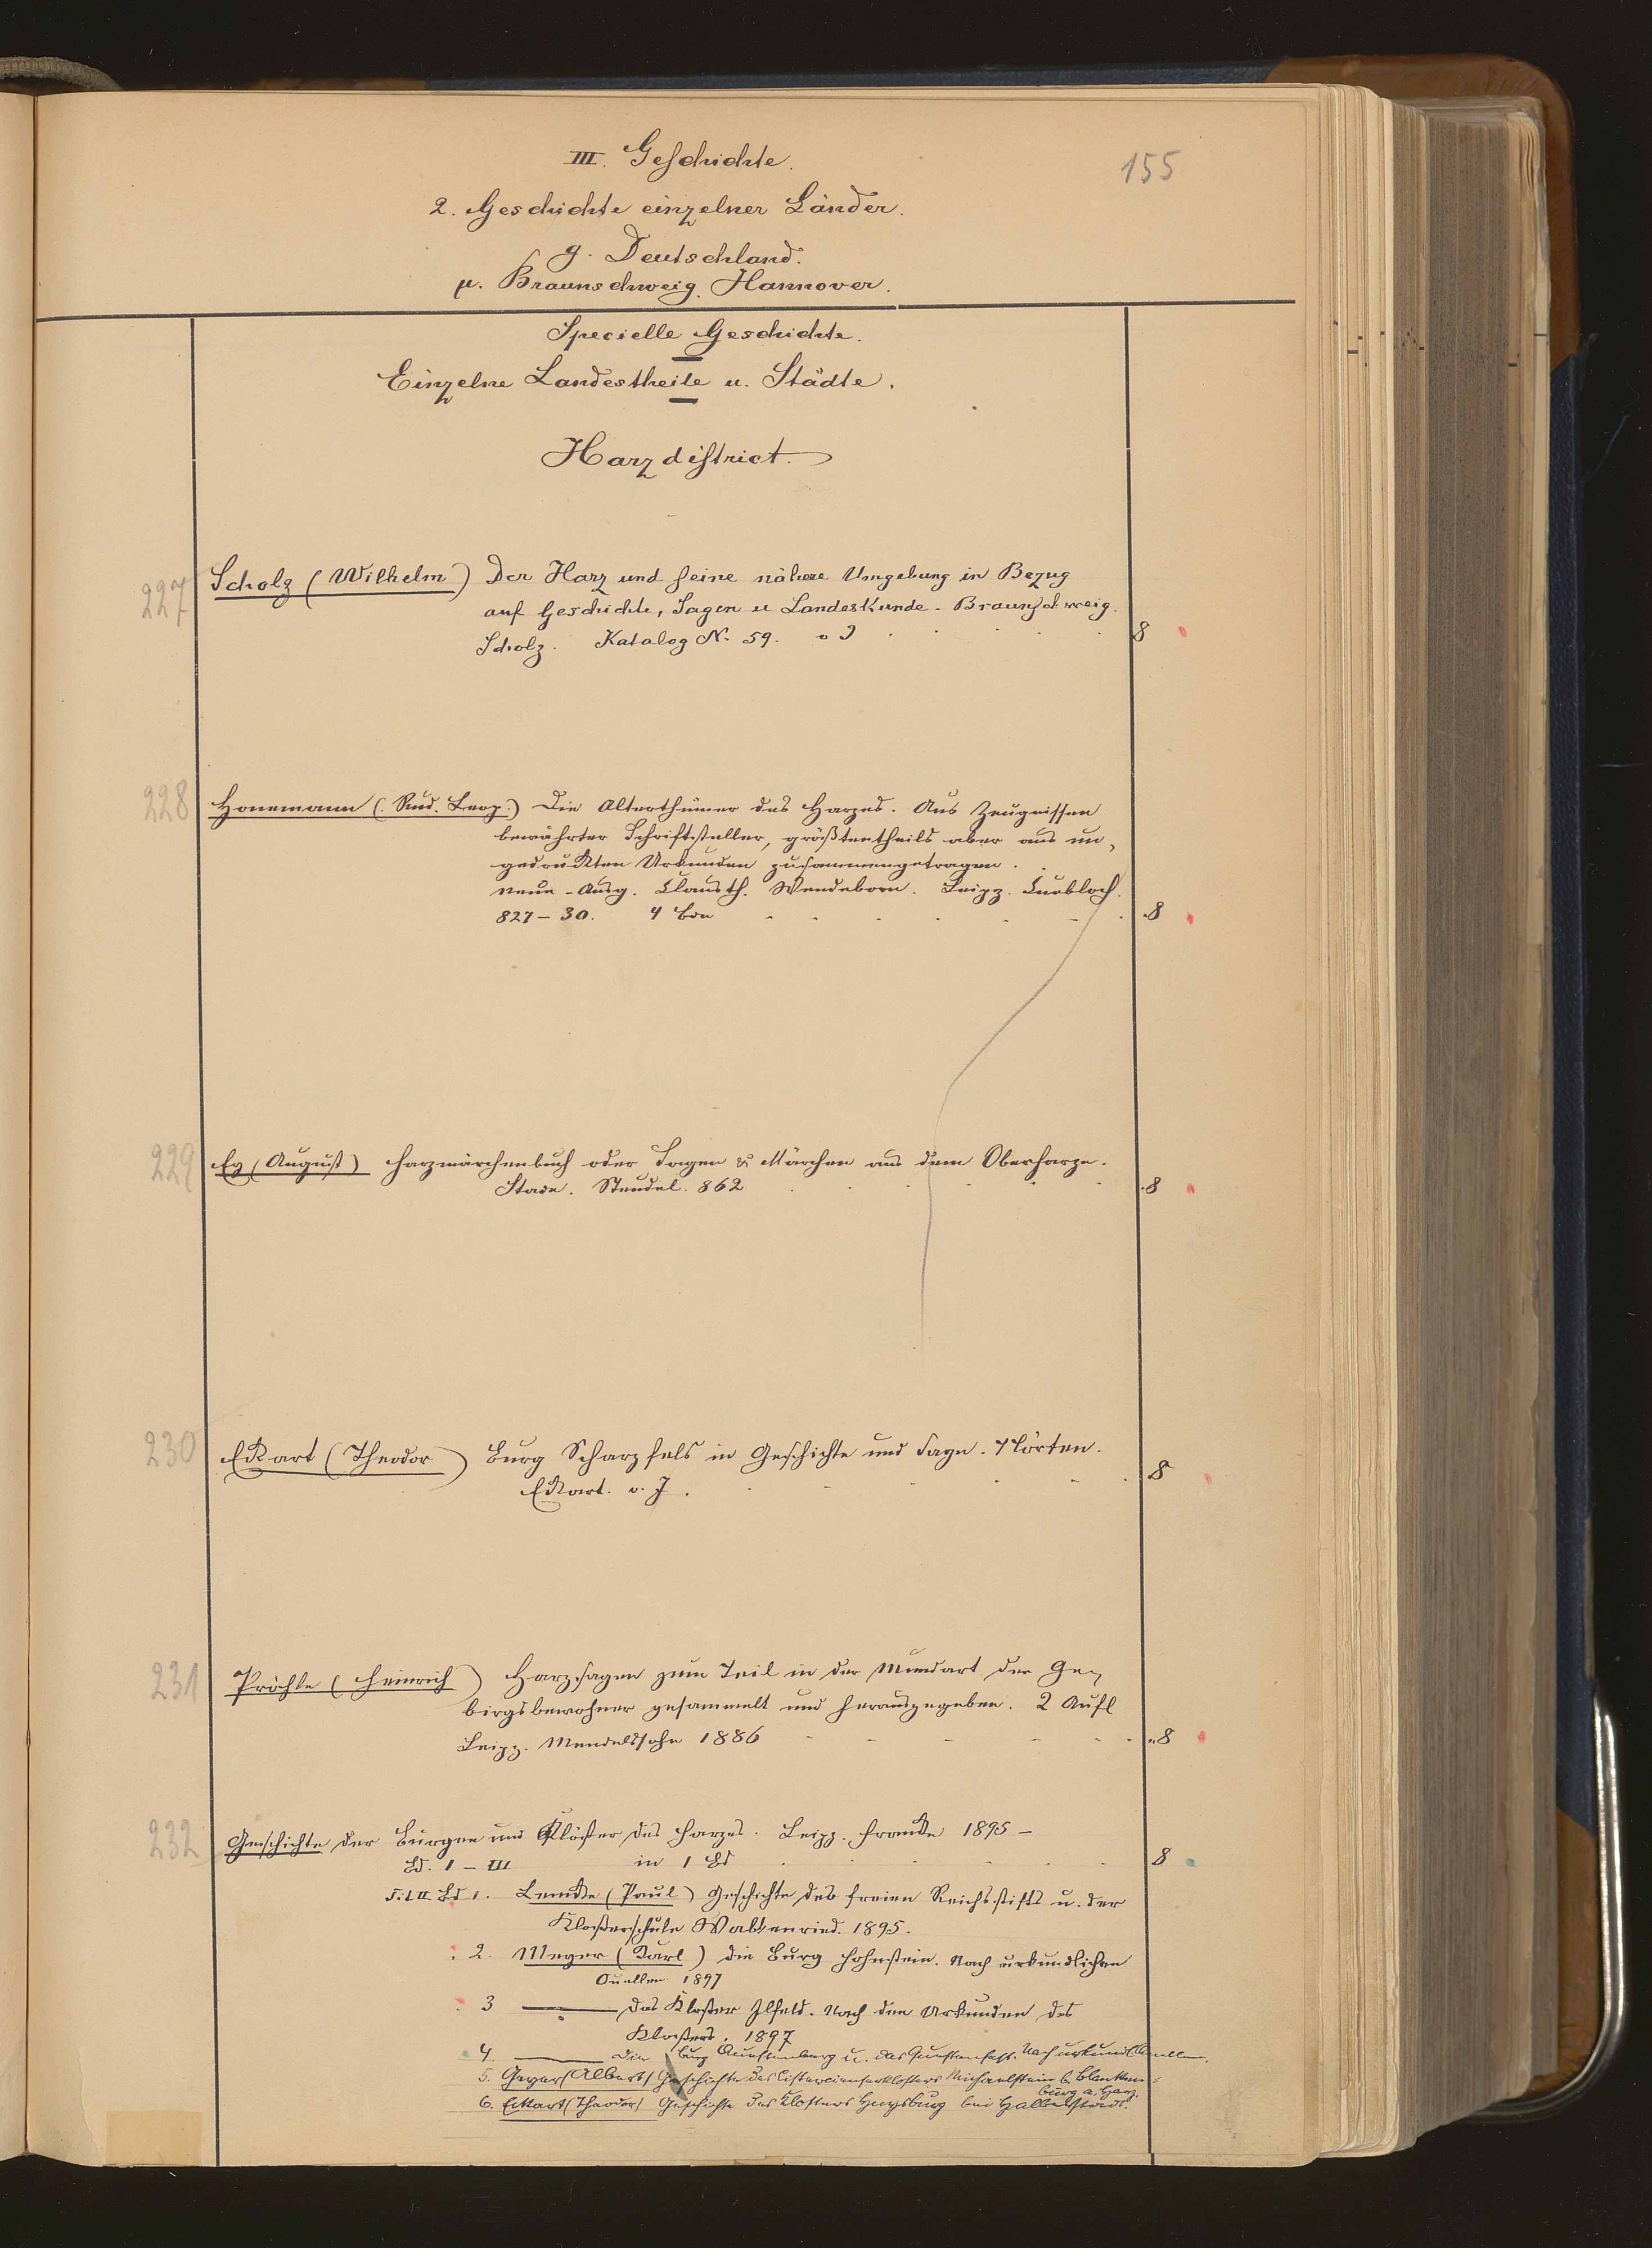 155
III. Geschichte.
2. Geschichte einzelner Länder.
g. Deutschland.
μ. Braunschweig. Hannover.
Specielle Geschichte.
Einzelne Landestheile u. Städte.
Harzdistrict.
227 Scholz (Wilhelm) Der Harz und seine nähere Umgebung in Bezug
auf Geschichte, Sagen u Landeskunde - Braunschweig.
Scholz. Katalog N. 59. o J 8
228 Honemann (Rud. Leop.) Die Alterthümer des Harzes. Aus Zeugnissen
bewährter Schriftsteller, größtentheils aber aus un-
gedruckten Urkunden zusammengetragen.
Neue-Ausg. Clausth. Wendeborn. Leipz.
827-30. 4 Bde 8
229 Ey (August) Harzmärchenbuch oder Sagen & Märchen aus dem Oberharze.
Stade. Steudel. 862 8
230 Eckart (Theodor) Burg Scharzfels in Geschichte und Sage. Nörten.
Eckart. o. J. 8
231 Pröhle (Heinrich) Harzsagen zum Teil in der Mundart der Ge-
birgsbewohner gesammelt und herausgegeben. 2 Aufl
Leipz. Mendelssohn 1886 8
232 Geschichte der Burgen und Klöster des Harzes. Leipz. Francke 1895-
Bd. I-III in 1 Bd 8
Bd 1. Lemcke (Paul) Geschichte des freien Reichsstifts u. der
Klosterschule Walkenried. 1895.
2. Meyer (Karl) die Burg Hohnstein. Nach urkundlichen
Quellen 1897
3 — Das Kloster Ilfeld. Nach den Urkunden des
Klosters. 1897
4. — Die Burg Questenberg u. das Questenfest. Nach urkundl. Quellen.
5. Geyer (Albert) Geschichte des Cistercienserklosters Michaelstein b. Blanken-
burg a. Harz.
6. Eckart (Theodor) Geschichte des Klosters Huysburg bei Halberstadt.